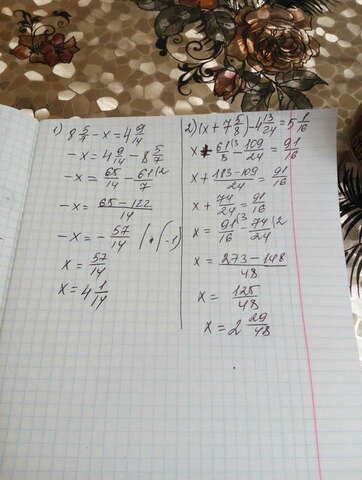 1) 8 5/7 - x = 4 9/14
-x = 4 9/14 - 8 5/7
-x = 65/14 - 61/7 |2
-x = 65-122/14
-x = - 57/14 | • (-1)
x = 57/14
x = 4 1/14
2) (x + 7 5/8) - 4 13/24 = 5 11/16
x + 61/8 |3 - 109/24 = 91/16
x + 183-109/24 = 91/16
x + 74/24 = 91/16
x = 91/16 |3 - 74/24 |2
x = 273-148/48
x = 125/48
x = 2 29/48